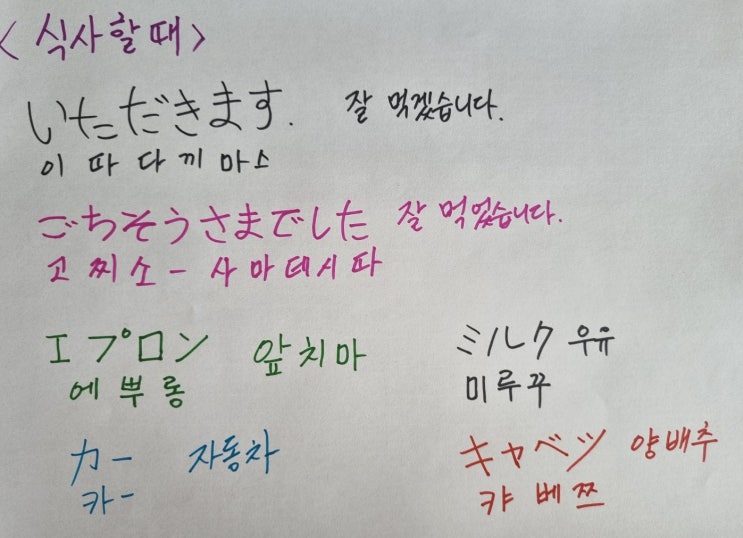 <식사할때>
いただきます. 잘 먹겠습니다.
이 따 다 끼 마 스
ごちそうさまでした 잘 먹었습니다.
고 찌 소 - 사 마 데 시 따
エプロン 앞치마
에 뿌 롱
ミルク 우유
미 루 꾸
カー 자동차
카 -
キャベツ 양배추
캬 베 쯔